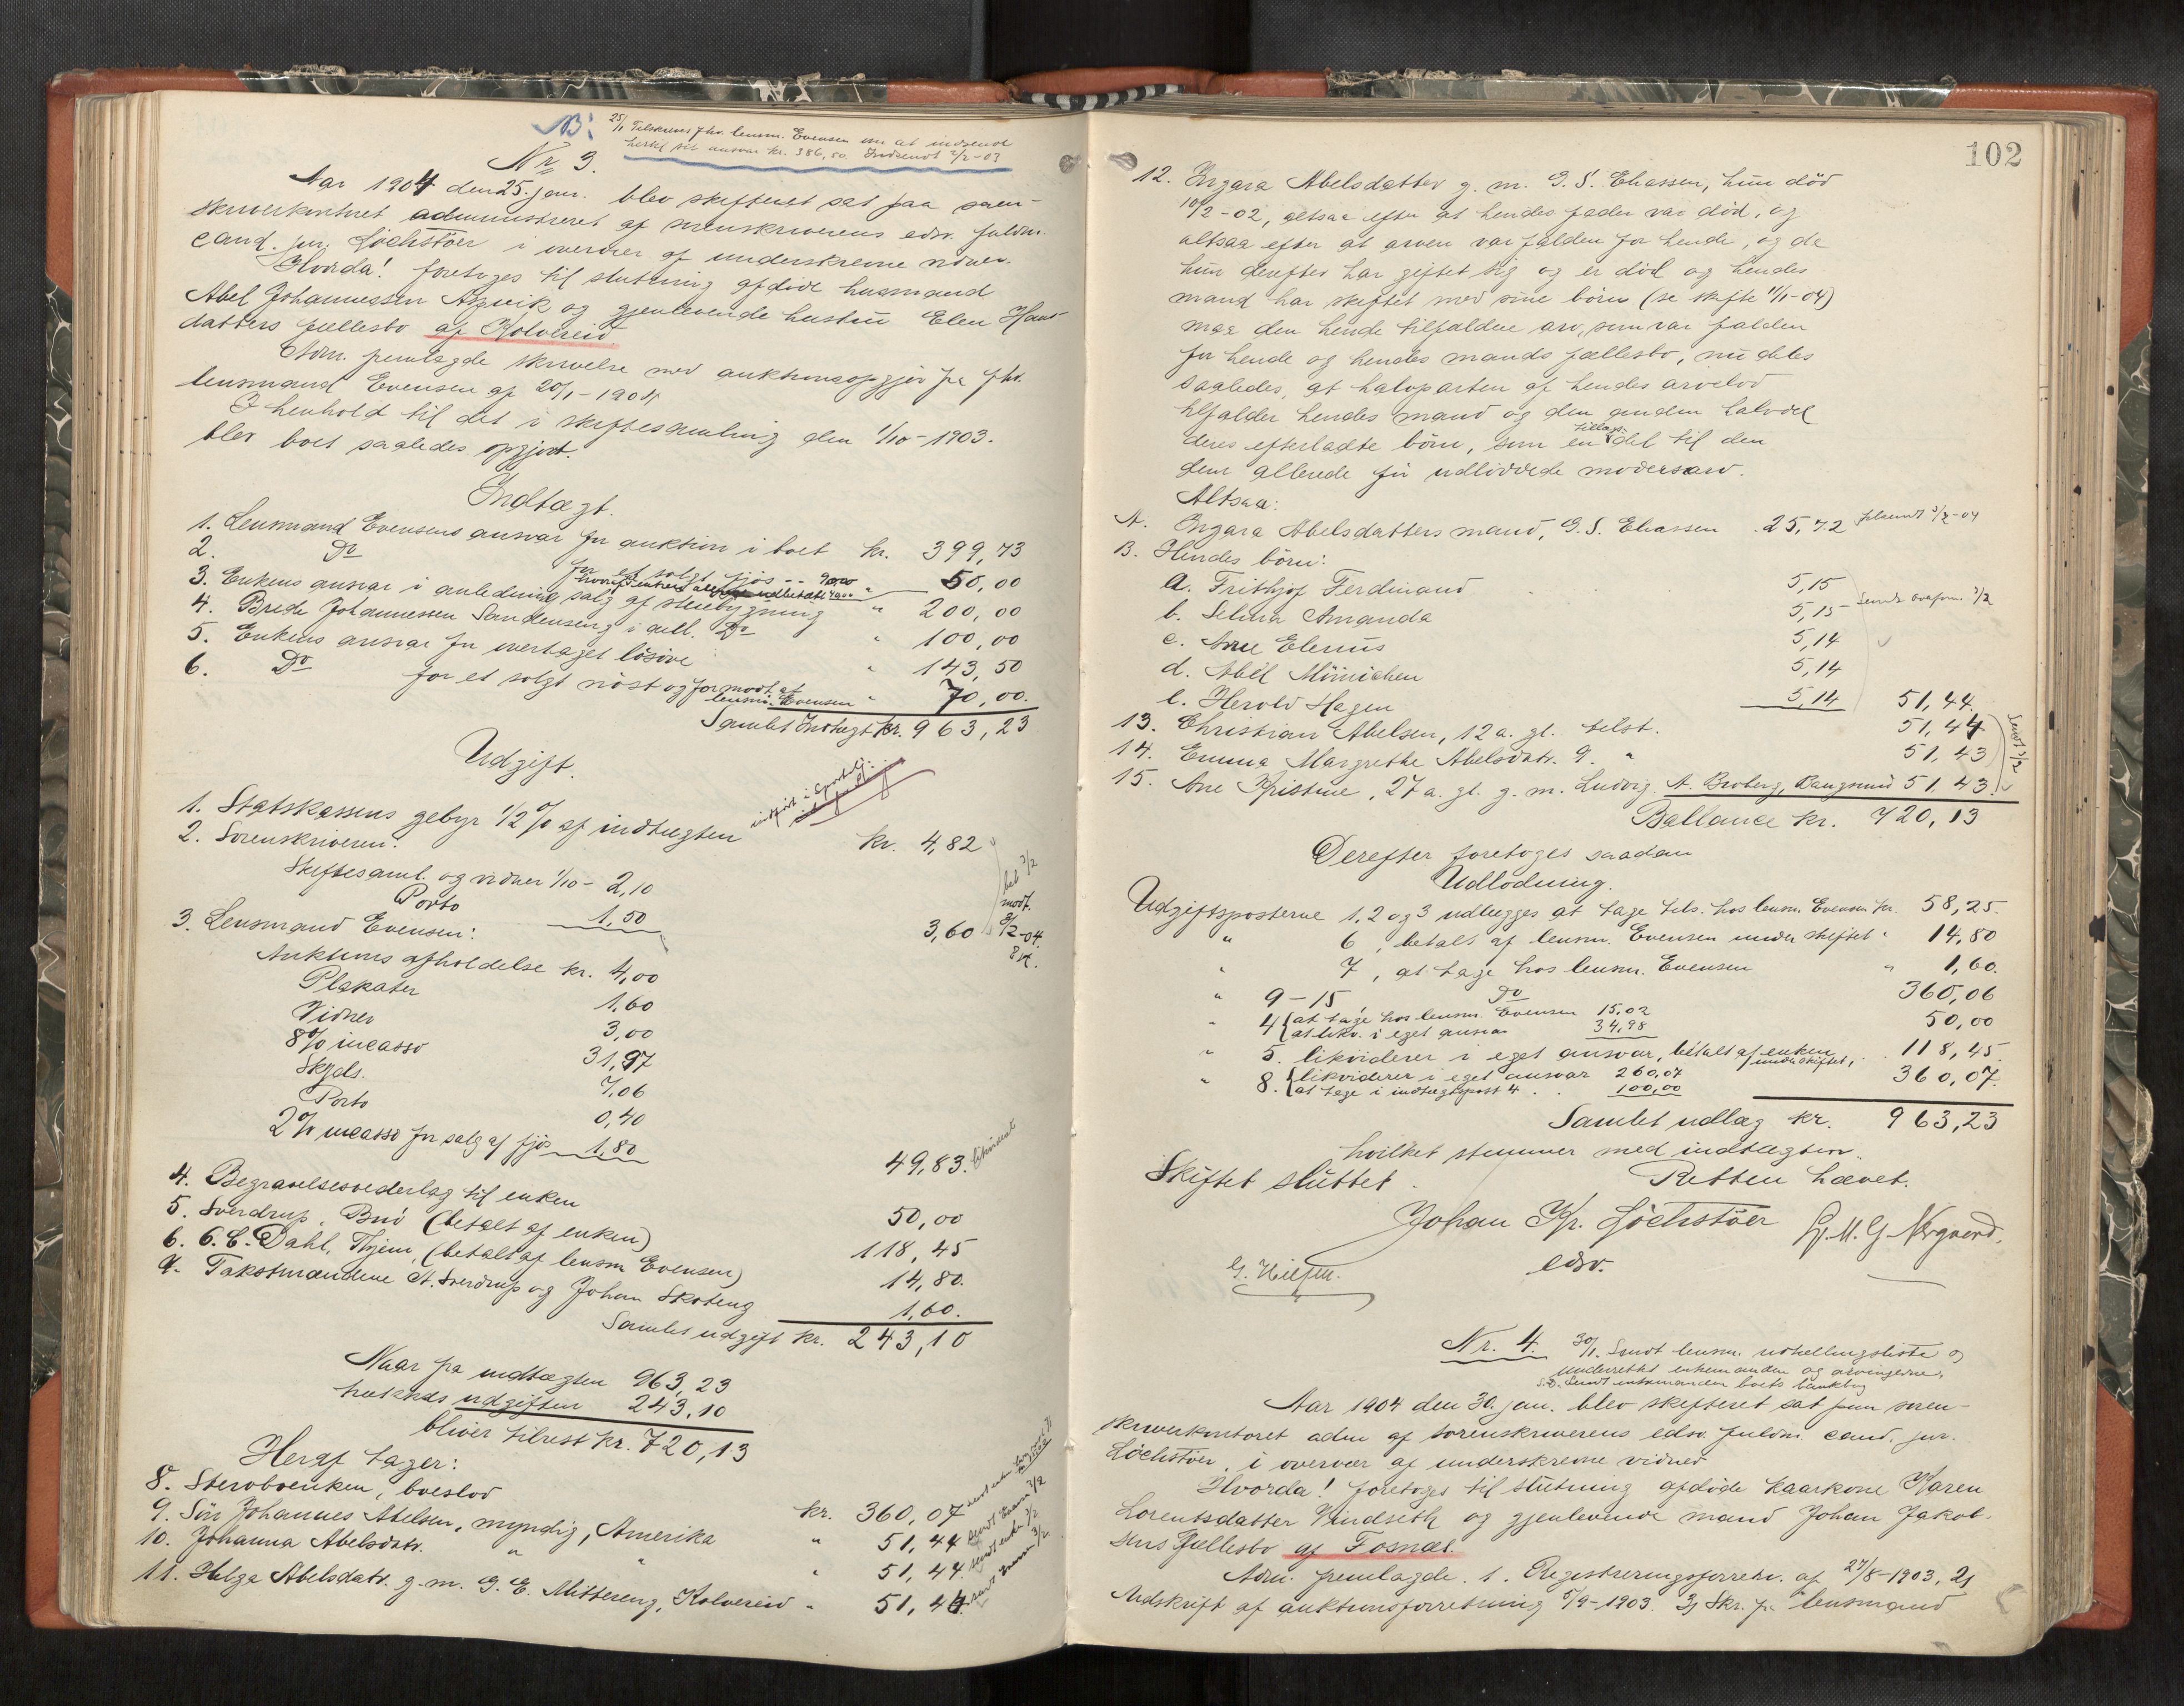 NB!
25/1 Tilskrevet fhv. lensm. Evensen om at indsende
hertil sit ansvar kr. 386,50. Indsendt 2/2-03
Nr 3.
Aar 1904 den 25. janr. blev skifteret sat paa soren-
skriverkontoret administreret af sorenskriverens edsv. fuldm.
cand. jur. Löchstöer i overvær af underskrevne vidner.
Hvorda! foretoges til slutning afdöde husmand
Abel Johannessen Aavik og gjenlevende hustru Elen Hans-
datters fællesbo af Kolvereid.
Adm. fremlagde skrivelse med auktionsopgjör fra fhv.
lensmand Evensen af 20/1-1904
I henhold til det i skiftesamling den 1/10-1903.
blev boet saaledes opgjort.
Indtægt.
1. Lensmand Evensens ansvar for auktion i boet kr. 399,73
2. Do for et solgt fjös -- 90,00
hvoraf enken udbetalt 40,00 " 50,00
3. Enkens ansvar i anledning salg af stuebygning " 200,00
4. Brede Johannessen Sandenseng i anl. Do " 100,00
5. Enkens ansvar for overtaget lösöre " 143,50
6. Do for et solgt nöst og for modt. af
lensm. Evensen " 70,00.
Samlet Indtægt kr. 963,23
Udgift.
1. Statskassens gebyr 1/2 % af indtægten indfört i sportelj. kr. 4,82
2. Sorenskriveren:
Skiftesaml. og vidner 1/10 - 2,10
Porto 1,50
3,60
bet 3/2
modt.
8/2-04.
3. Lensmand Evensen:
Auktions afholdelse kr. 4,00
Plakater 1,60
Vidner 3,00
8% incasso 31,97
Skyds. 7,06
Porto 0,40
2% incasso for salg af fjös 1,80
49,83. likvideret
4. Begravelsesvederlag til enken 50,00
5. Sverdrup, Brud (betalt af enken) 118,45
6. C. C. Dahl, Thjem, (betalt af lensm Evensen) 14,80.
7. Takstmændene A. Sverdrup og Johan Skoteng 1,60.
Samlet udgift kr. 243,10
Naar fra indtægten 963,23
trækkes udgiften 243,10
bliver tilrest kr. 720,13
Heraf tager:
8. Stervboenken, boeslod kr. 360,07
9. Sön Johannes Abelsen, myndig, Amerika " 51,44
10. Johanna Abelsdatr. " " " 51,44.
11. Helga Abelsdatr. g. m. G. E. Mitteseng, Kolvereid " 51,44.
102
12. Ingara Abelsdatter g. m. G. S. Eliassen, hun död
10/2-02, altsaa efter at hendes fader var död, og
altsaa efter at arven var falden for hende, og da
hun derefter har giftet sig og er död og hendes
mand har skiftet med sine börn (se skifte 11/1-04)
maa den hende tilfaldne arv, som var falden
for hende og hendes mands fællesbo, nu deles
saaledes, at halvparten af hendes arvelod
tilfalder hendes mand og den anden halvdel
deres efterladte börn, som en tillægs-del til den
dem allerede för udlodde mödrearv.
Altsaa:
A. Ingara Abelsdatters mand, G. S. Eliassen 25,72 tilsendt 3/2-04
B. Hendes börn:
a. Frithjof Ferdinand 5,15
b. Selma Amanda 5,15 - Sendt overform. 3/2
c. Arne Elenius 5,14
d. Abel Möinichen 5,14
e. Herold Hagen 5,14 51,44.
13. Christian Abelsen, 12 a. gl. tilst. 51,44
14. Emma Margrethe Abelsdatr. 9. " 51,43
Sendt 3/2
15. Ane Kristine, 27 a. gl. g. m. Ludvig A. Broberg, Bangsund 51,43.
Ballance kr. 720,13
Derefter foretoges saadan
Udlodning.
Udgiftsposterne 1, 2 og 3 udlægges at tage tils. hos lensm. Evensen kr. 58,25.
" 6, betalt af lensm. Evensen under skiftet " 14,80
" 7, at tage hos lensm. Evensen " 1,60.
" 9-15 Do 360,06
" 4 {at tage hos lensm. Evensen 15,02
at likv. i eget ansvar 34,98 50,00
" 5. likviderer i eget ansvar, betalt af enken under skiftet, 118,45.
" 8. {likviderer i eget ansvar 260,07
at tage i indtægtspost 4 . . 100,00 360,07.
Samlet udlæg kr. 963,23
hvilket stemmer med indtægten.
Skiftet sluttet. Retten hævet.
Johan Kr. Löchstöer
edsv.
Nr. 4. 30/1. Sendt lensm. utdellingsliste og
underrettet enkemanden og arvingerne.
S. D. Sendt enkemanden boets bankbog
Aar 1904 den 30. jan. blev skifteret sat paa soren-
skriverkontoret adm af sorenskriverens edsv. fuldm. cand. jur.
Löchstöer, i overvær af underskrevne vidner
Hvorda! foretoges til slutning afdöde kaarkone Karen
Lorentsdatter Vindseth og gjenlevende mand Johan Jakob-
sens fællesbo af Fosnæs.
Adm. fremlagde. 1. Registreringsforretn. af 27/8-1903, 2,
Udskrift af auktionsforretning 5/9-1903. 3, Skr. fra lensmand